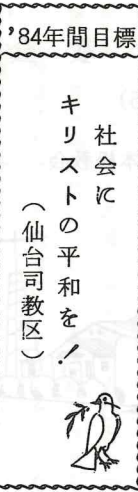 '84年間目標
社会に
キリストの平和を!
(仙台司教区)